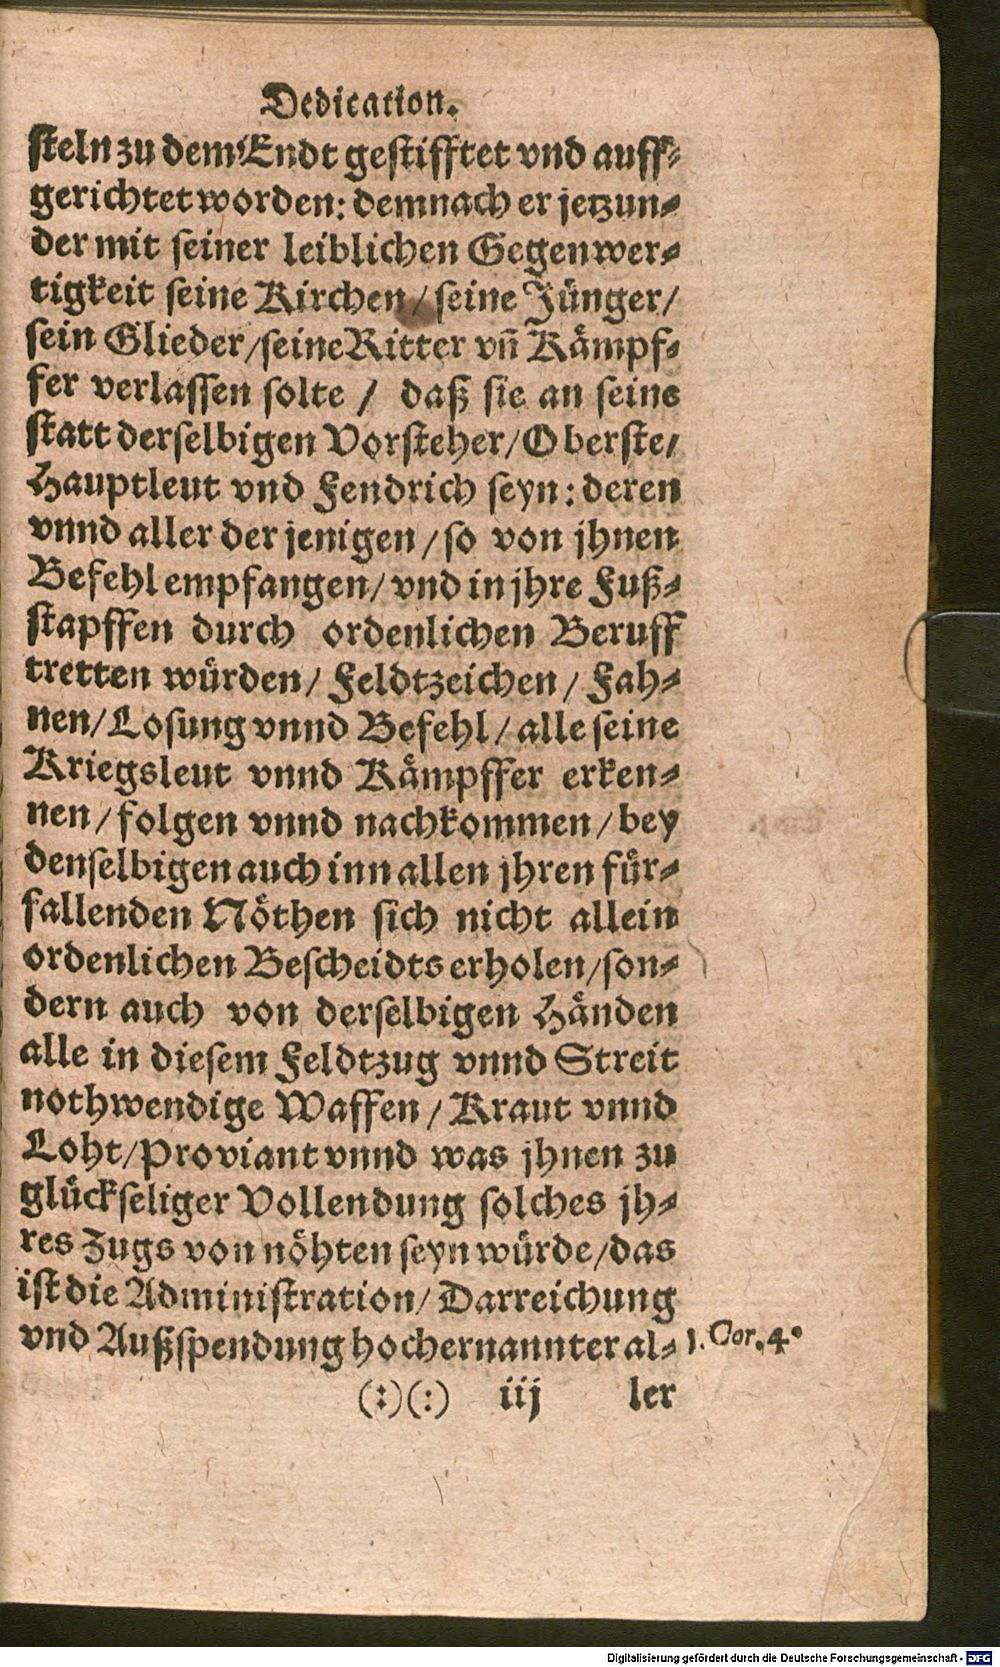 Dedication.
steln zu dem Endt gestifftet vnd auff-
gerichtet worden: demnach er jetzun-
der mit seiner leiblichen Gegenwer-
tigkeit seine Kirchen / seine Jünger /
sein Glieder / seine Ritter vñ Kämpf-
fer verlassen solte / daß sie an seine
statt derselbigen Vorsteher / Oberste /
Hauptleut vnd Fendrich seyn: deren
vnnd aller der jenigen / so von jhnen
Befehl empfangen / vnd in jhre Fuß-
stapffen durch ordenlichen Beruff
tretten würden / Feldtzeichen / Fah-
nen / Losung vnnd Befehl / alle seine
Kriegsleut vnnd Kämpffer erken-
nen / folgen vnnd nachkommen / bey
denselbigen auch inn allen jhren für-
fallenden Nöthen sich nicht allein
ordenlichen Bescheidts erholen / son-
dern auch von derselbigen Händen
alle in diesem Feldtzug vnnd Streit
nothwendige Waffen / Kraut vnnd
Loht / Proviant vnnd was jhnen zu
glückseliger Vollendung solches jh-
res Zugs von nöhten seyn würde / das
ist die Administration / Darreichung
vnd Außspendung hochernannter al-
1. Cor. 4.
(:)(:) iij ler
Digitalisierung gefördert durch die Deutsche Forschungsgemeinschaft - DFG